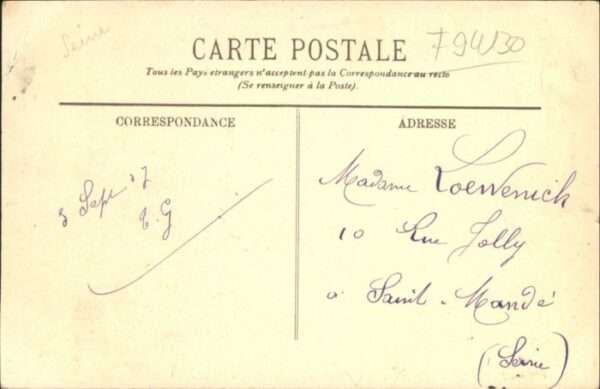 Seine
CARTE POSTALE
F9W30
Tous les Pays etrangers n'acceptent pas la Correspondance au recto
(Se renseigner à la Poste).
CORRESPONDANCE
3 Sept 17
E. G
ADRESSE
Madame Loewenick
10 Rue Jolly
a Saint-Mandé
(Seine)